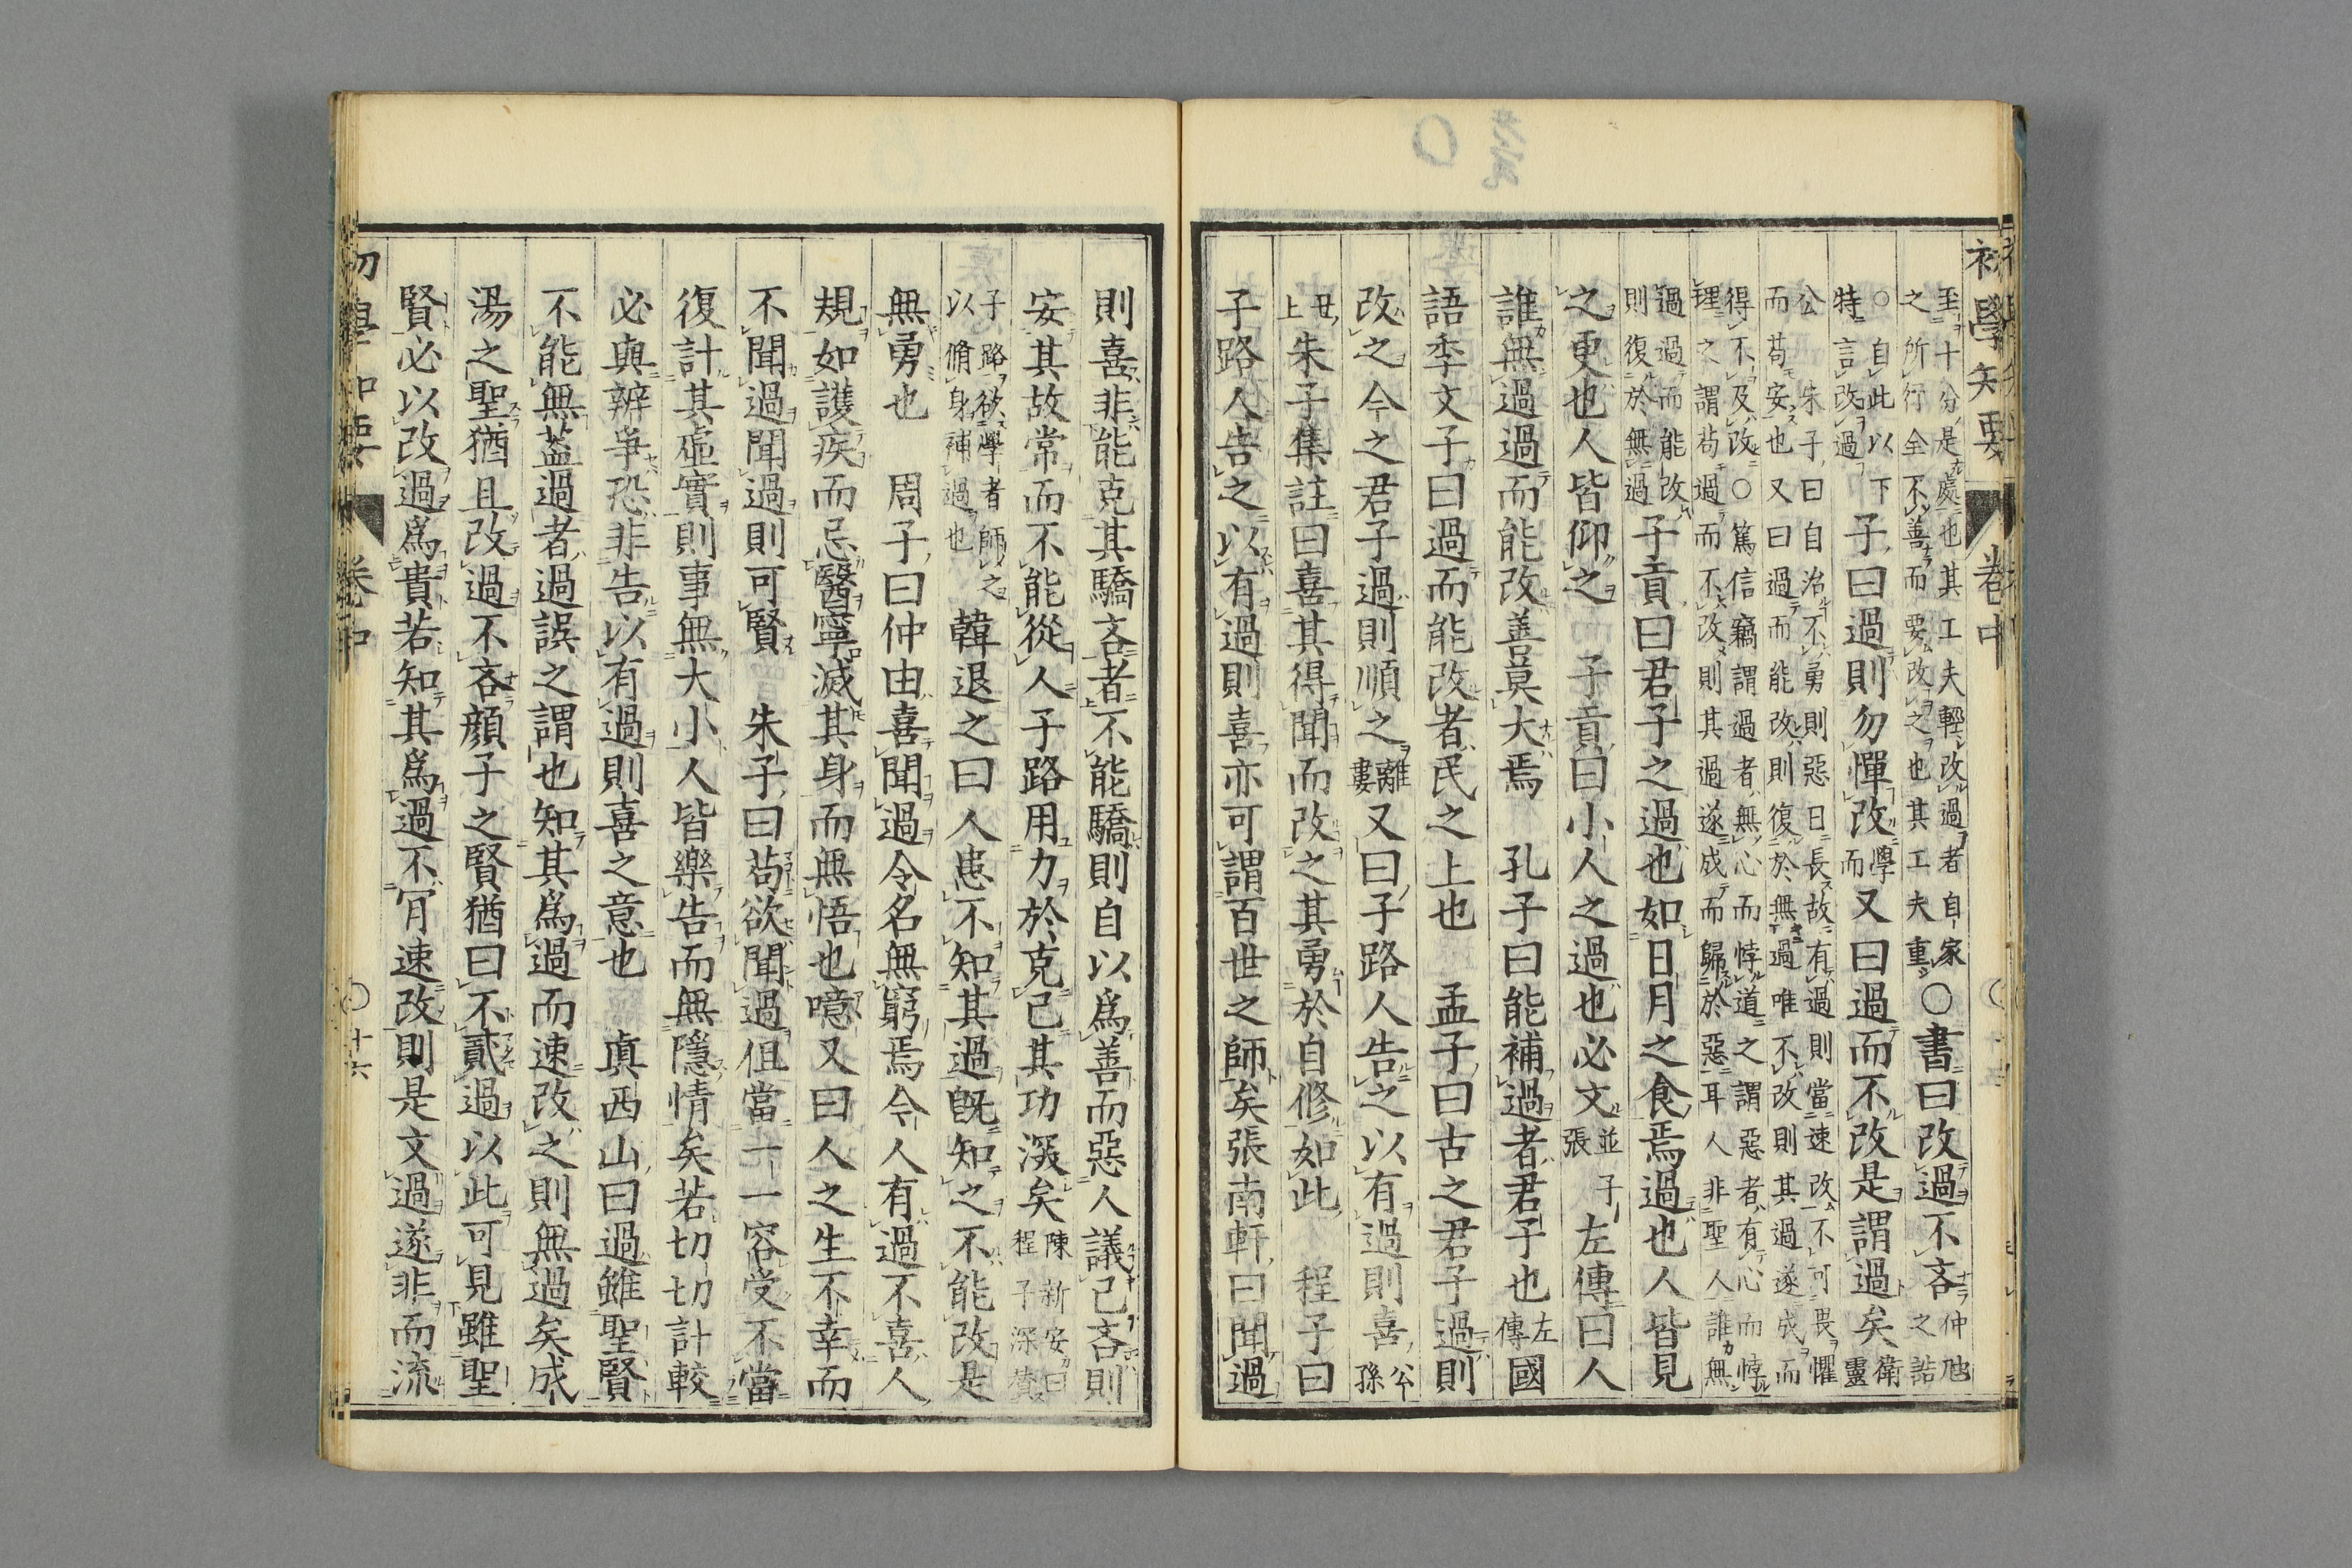 初學知要 卷中
至十分是處也其工夫輕改過者自家
之所行全不善而要改之也其工夫重○書曰改過不吝仲虺之誥
○自此以下
特言改過子曰過則勿憚改學而又曰過而不改是謂過矣衛靈
公朱子曰自治不勇則惡日長故有過則當速改不可畏懼
而苟安也又曰過而能改則復於無過唯不改則其過遂成而
得不及改○篤信竊謂過者無心而悖道之謂惡者有心而悖
理之謂苟過而不改則其過遂成而歸於惡耳人非聖人誰無
過過而能改
則復於無過子貢曰君子之過也如日月之食焉過也人皆見
之更也人皆仰之 子貢曰小人之過也必文並子張 左傳曰人
誰無過過而能改善莫大焉 孔子曰能補過者君子也左傳國
語季文子曰過而能改者民之上也 孟子曰古之君子過則
改之今之君子過則順之離婁又曰子路人告之以有過則喜公孫
丑上朱子集註曰喜其得聞而改之其勇於自修如此 程子曰
子路人告之以有過則喜亦可謂百世之師矣張南軒曰聞過
則喜非能克其驕吝者不能驕則自以爲善而惡人議己吝則
安其故常而不能從人子路用力於克己其功深矣陳新安曰程子深贊
子路欲學者師之
以脩身補過也韓退之曰人患不知其過既知之不能改是
無勇也 周子曰仲由喜聞過令名無窮焉今人有過不喜人
規如護疾而忌醫寧滅其身而無悟也噫又曰人之生不幸而
不聞過聞過則可賢 朱子曰苟欲聞過但當一一容受不當
復計其虛實則事無大小人皆樂告而無隱情矣若切切計較
必與辨爭恐非告以有過則喜之意也 眞西山曰過雖聖賢
不能無蓋過者過誤之謂也知其爲過而速改之則無過矣成
湯之聖猶且改過不吝顏子之賢猶曰不貳過以此可見雖聖
賢必以改過爲貴若知其爲過不肯速改則是文過遂非而流
初學知要 卷中 ○十六